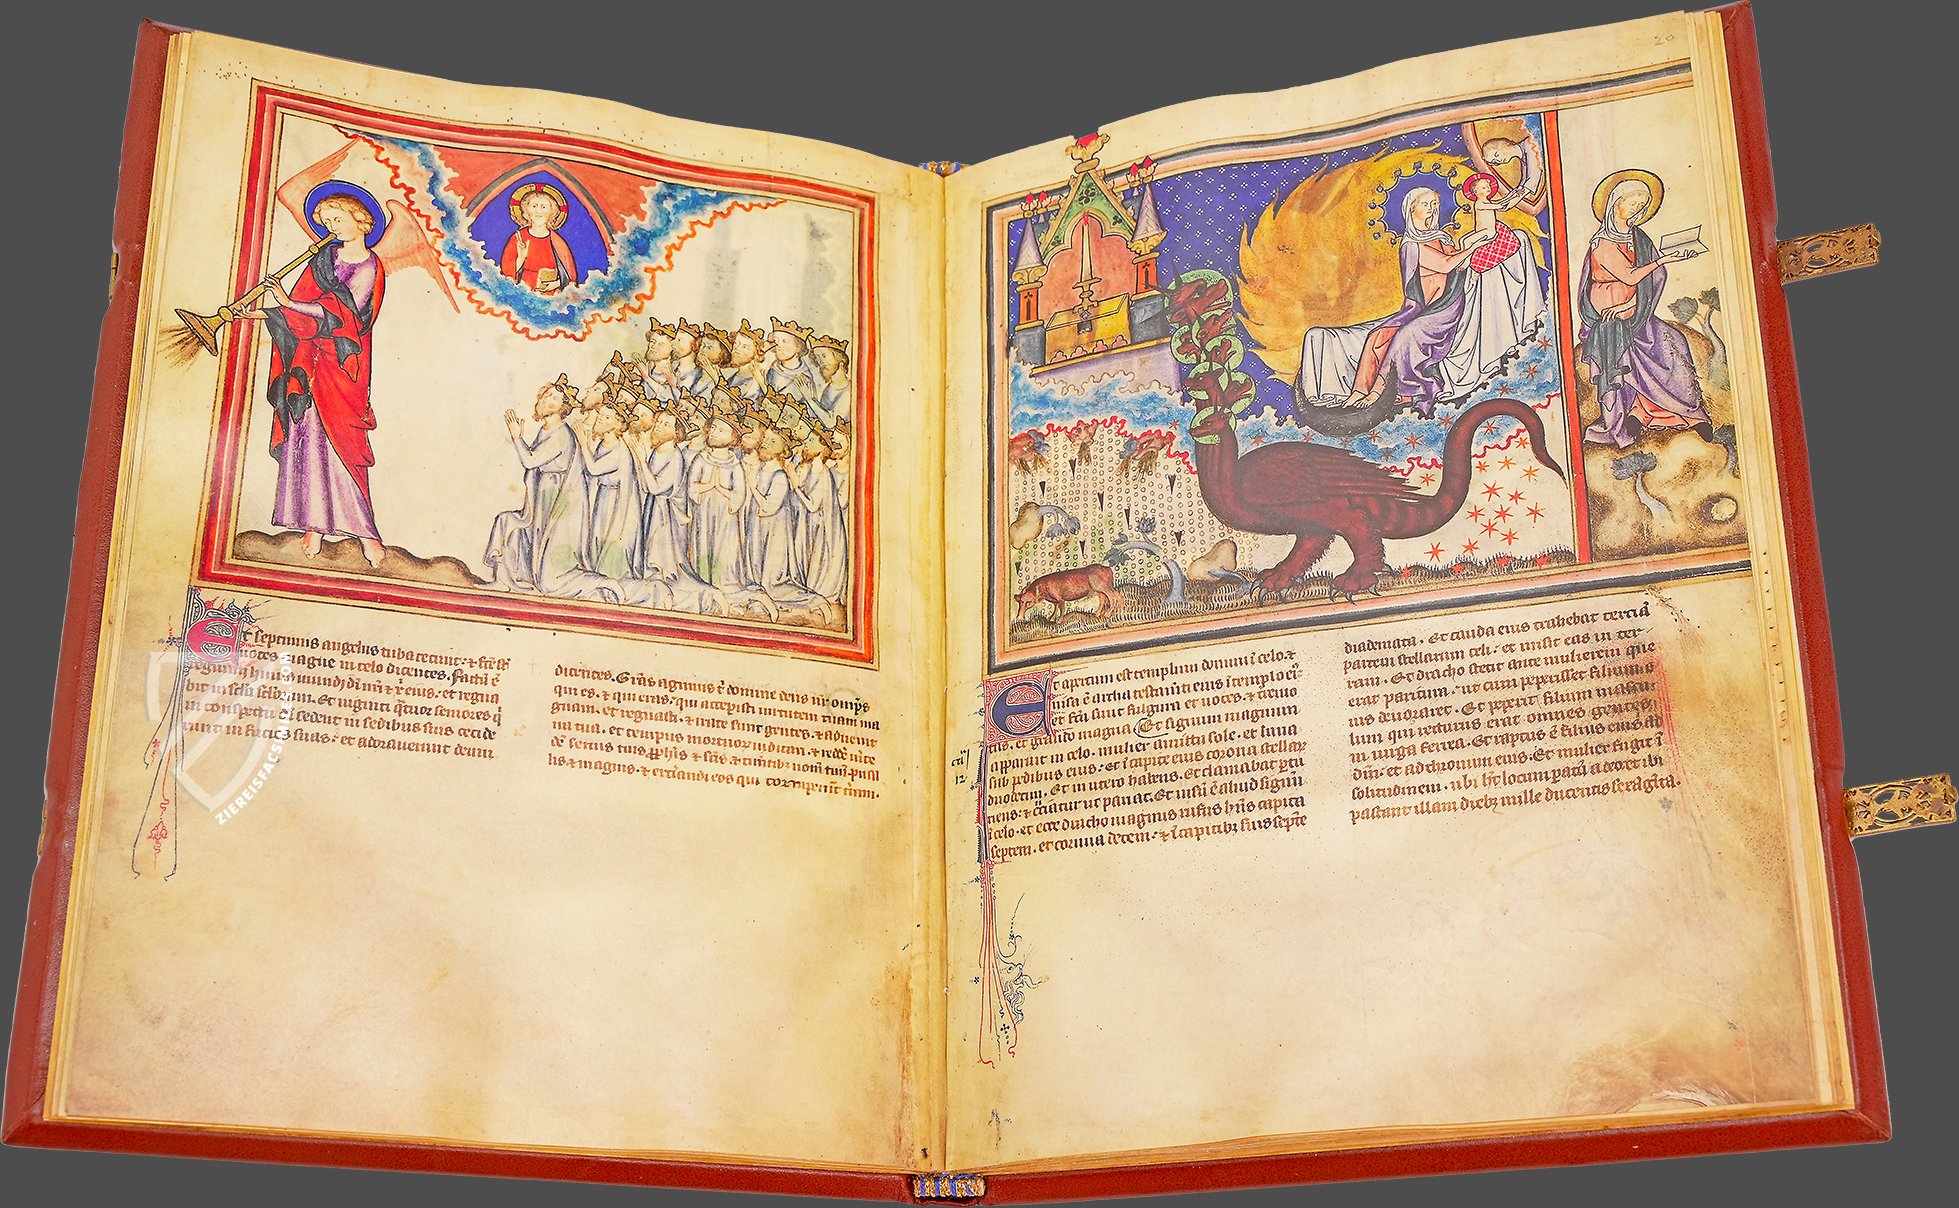 20
Et septimus angelus tuba cecinit: & fcē st̄
uoces magne in celo dicentes. factū ē
regnum huius mundi dn̄i nr̄i & xp̄i eius. et regna
bit in scl̄a scl̄orum. Et uiginti q̄tuor seniores q̄
in conspectu dī sedent in sedibus suis cecide
runt in facies suas: et adorauerunt deum
dicentes. Grās agimus t̄ domine deus nr̄ omīps
qui es. & qui eras. qui accepisti uirtutem tuam ma
gnam. et regnasti. & irate sunt gentes. & aduenit
ira tua. et tempus mortuoꝝ iudicari. & reddē mcē
dē seruis tuis ꝓphīs & scīs & timētibꝫ nom̄ tuū pusil
lis & magnis. & ext̄minandi eos qui corrup̄unt t̄ram.
Et apertum est templum domini ī celo. &
uisa ē archa testam̄ti eius ī templo eī
et fcā sunt fulgura et uoces. & tremo
tus. et grando magna. Et signum magnum
apparuit in celo. mulier amicta sole. et luna
sub pedibus eius. et ī capite eius corona stellaꝝ
duodecim. Et in utero habens. Et clamabat ꝑtu
riens. & cruciatur ut pariat. Et uisū ē aliud signū
ī celo. et ecce dracho magnus rufus hn̄s capita
septem. et cornua decem. & ī capitibꝫ suis septē
diademata. Et cauda eius trahebat terciā
partem stellarum celi. et misit eas in ter
ram. Et dracho stetit ante mulierem que
erat paritura. ut cum peperisset filium
eius deuoraret. Et peperit filium mascu
lum qui recturus erat omnes gentes.
in uirga ferrea. Et raptus ē filius eius ad
dm̄. et ad thronum eius. Et mulier fugit ī
solitudinem. ubi h̄t locum ꝑatū a deo et ibi
pascant illam diebꝫ mille ducentis sexagīta.
12
ZIEREISFACSIMILES.COM